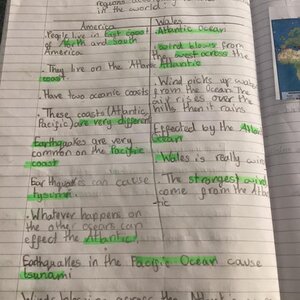 in the world:
America
Wales
. People live in East coast
of North and South
America
. They live on the Atlantic
coast
. Have two oceanic coasts
. These coasts (Atlantic,
Pacific) are very different
Earthquakes are very
common on the Pacific
coast
Earthquakes can cause
. Whatever happens on
the other oceans can
effect the Atlantic.
Earthquakes in the Pacific Ocean cause
tsunami
Atlantic Ocean
. wind blows from
the west across the
Atlantic
. Wind picks up water
from the Ocean. The
air rises over the
hills then it rains
Effected by the
Ocean
. Wales is really
. The strongest
come from the
tic